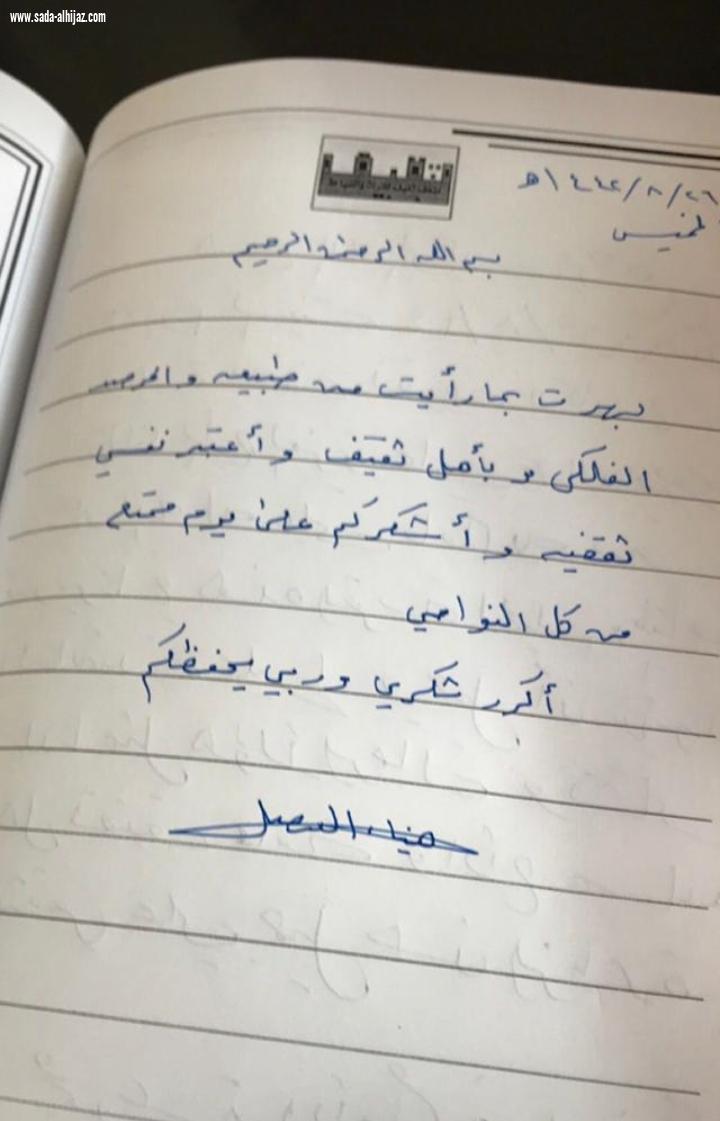 www.sada-alhijaz.com
٢٦/٨/١٤٤٢هـ
الخميس
بسم الله الرحمن الرحيم
بهرت بما رأيت من طبيعه والمرصد
الفلكي وبأهل ثقيف وأعتبر نفسي
ثقفيه وأشكركم على يوم ممتع
من كل النواحي
أكرر شكري وربي يحفظكم